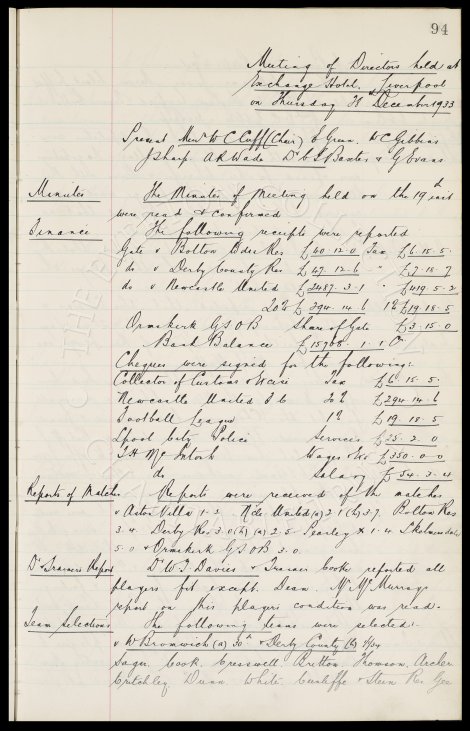 94
Meeting of Directors held at
Exchange Hotel, Liverpool
on Thursday 28 December 1933
Present Messrs W C Cuff (Chair) E Green W C Gibbins
J Sharp A R Wade Dr C S Baxter & G Evans
Minutes The Minutes of Meeting held on the 19th inst
were read & confirmed
Finance The following receipts were reported
Gate v Bolton Wdrs Res £40.12.0 Tax £6.15.5.
do v Derby County Res £47.12.6 " £7.18.7
do v Newcastle United £2487.3.1 " £419.5.2
20% £294.14.6 1% £19.18.5
Ormskirk G S O B Share of Gate £3.15.0
Bank Balance £15708.1.1 Or
Cheques were signed for the following:
Collector of Customs & Excise Tax £6.15.5.
Newcastle United F C 20% £294.14.6
Football League 1% £19.18.5
Lpool City Police Services £25.2.0
T H McIntosh Wages &c £350.0.0
do Salary £54.3.4
Reports of Matches Reports were received of the matches
v Aston Villa 1-2. N'cle United (a) 2.1 (h) 3.7. Bolton Res
3.4. Derby Res 3.0 (h) (a) 2.5. 1.4. Skelmersdale
5.0 & Ormskirk G S O B 3.0.
Dr & Trainers Report Dr W J Davies & Trainer Cooke reported all
players fit except Dean. Mr McMurray
report on this players condition was read.
Team Selections The following teams were selected:-
v W Bromwich (a) 30th & Derby County (h) 1/1/34
Sagar Cook. Cresswell Britton Thomson. Archer
Critchley Dunn. White. Cunliffe & Stein Res Gee